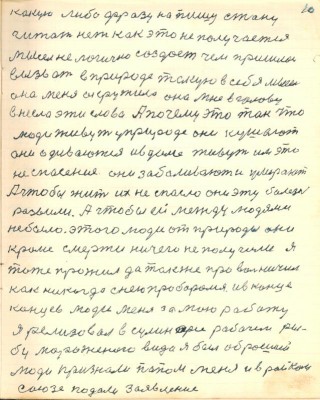 20
какую либо фразу напишу стану
читать нет как это не получается
мысел не логично создает чем пришли
влизат в природе такую в себя мысел
она меня окружила она мне в голову
внесла эти слова А почему это так что
люди живут у природе они кушают
они одиваются и в доме живут им это
не спасения они заболивают и умирают
А чтобы жит их не спасло они эту болезн
развили. А чтобы ей между людями
небыло. этого люди от природы они
кроме смерти ничего не получили Я
тоже прожил да також провольничил
как никогда с нею проборолся. и в конце
концев люди меня за мою работу
я релизовал в сулин рабочем ры-
бу мороженого вида я был обросший
люди признали патом меня и в райком
союзе подали заявление